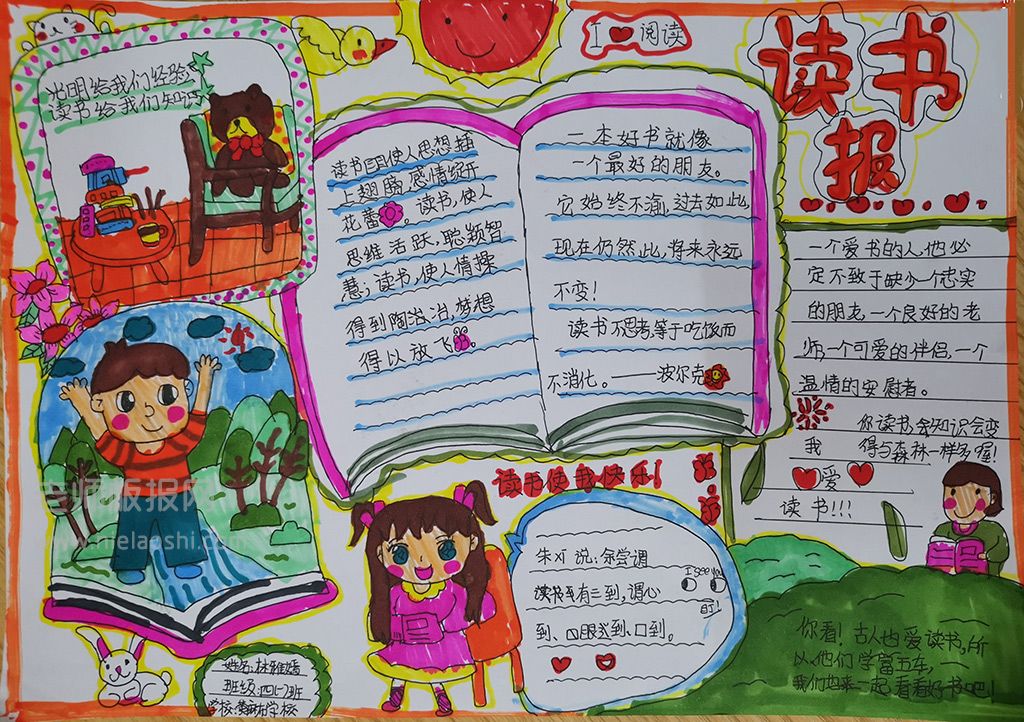 读书报
I ❤ 阅读
光明给我们经验
读书给我们知识
读书可使人思想插
上翅膀,感情绽开
花蕾。读书,使人
思维活跃,聪颖智
慧;读书,使人情操
得到陶冶,梦想
得以放飞。
一本好书就像
一个最好的朋友。
它始终不渝,过去如此,
现在仍然此,将来永远
不变!
读书不思考,等于吃饭而
不消化。——波尔克
一个爱书的人,他必
定不致于缺少一个忠实
的朋友,一个良好的老
师,一个可爱的伴侣,一个
温情的安慰者。
你读书,知识会变
得与森林一样多喔!
我
爱
读书!!!
读书使我快乐!
说:余尝谓
读书有三到,谓心
到、眼到、口到。
I see you
你看!古人也爱读书,所
以,他们学富五车,
我们也来一起看看好书吧!
姓名:林雅嫱
班级:四(一)班
学校:学校
老师版报网
www.hielaoshi.com